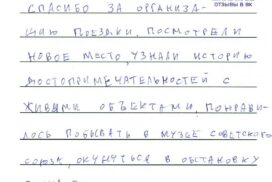 ОТЗЫВЫ В ВК
СПАСИБО ЗА ОРГАНИЗА-
ЦИЮ ПОЕЗДКИ, ПОСМОТРЕЛИ
НОВОЕ МЕСТО, УЗНАЛИ ИСТОРИЮ
ДОСТОПРИМЕЧАТЕЛЬНОСТЕЙ С
ЖИВЫМИ ОБЪЕКТАМИ, ПОНРАВИ-
ЛОСЬ ПОБЫВАТЬ В МУЗЕЕ СОВЕТСКОГО
СОЮЗА, ОКУНУТЬСЯ В ОБСТАНОВКУ